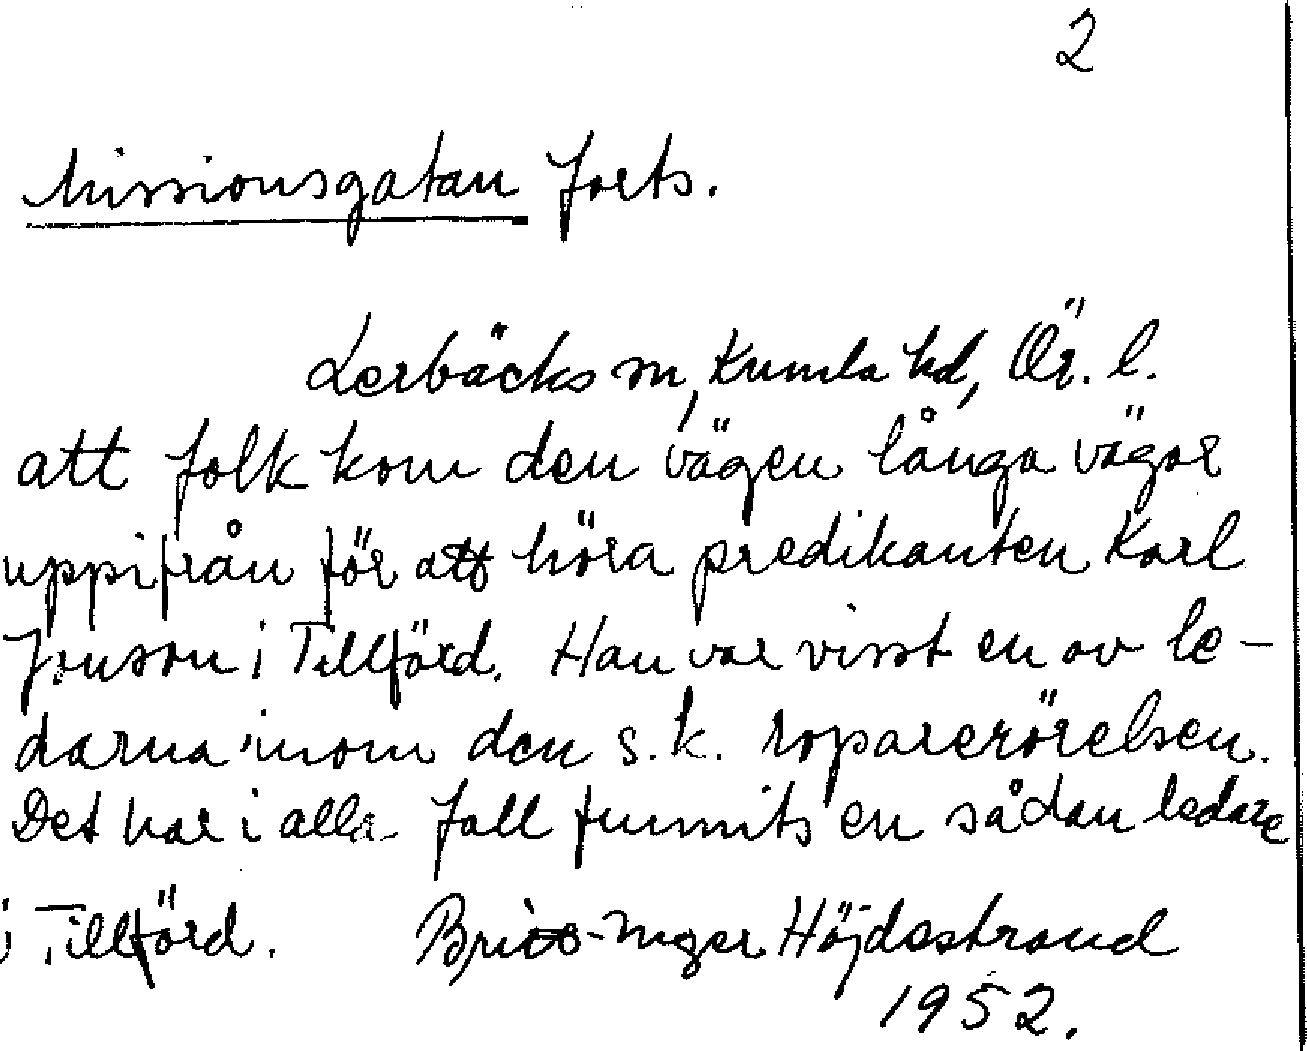 2
Missionsgatan forts.
Lerbäcks sn, Kumla hd, Ör. l.
att folk kom den vägen långa vägar
uppifrån för att höra predikanten Karl
Jonson i Tillförd. Han var visst en av le-
darna inom den s.k. roparerörelsen.
Det har i alla fall funnits en sådan ledare
i Tillförd. Höjdestrand
1952.